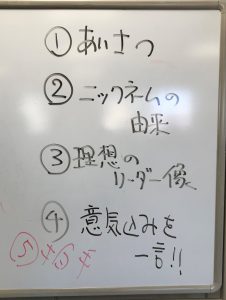 ① あいさつ
② ニックネームの
由来
③ 理想の
リーダー像
④ 意気込みを
一言!!
⑤